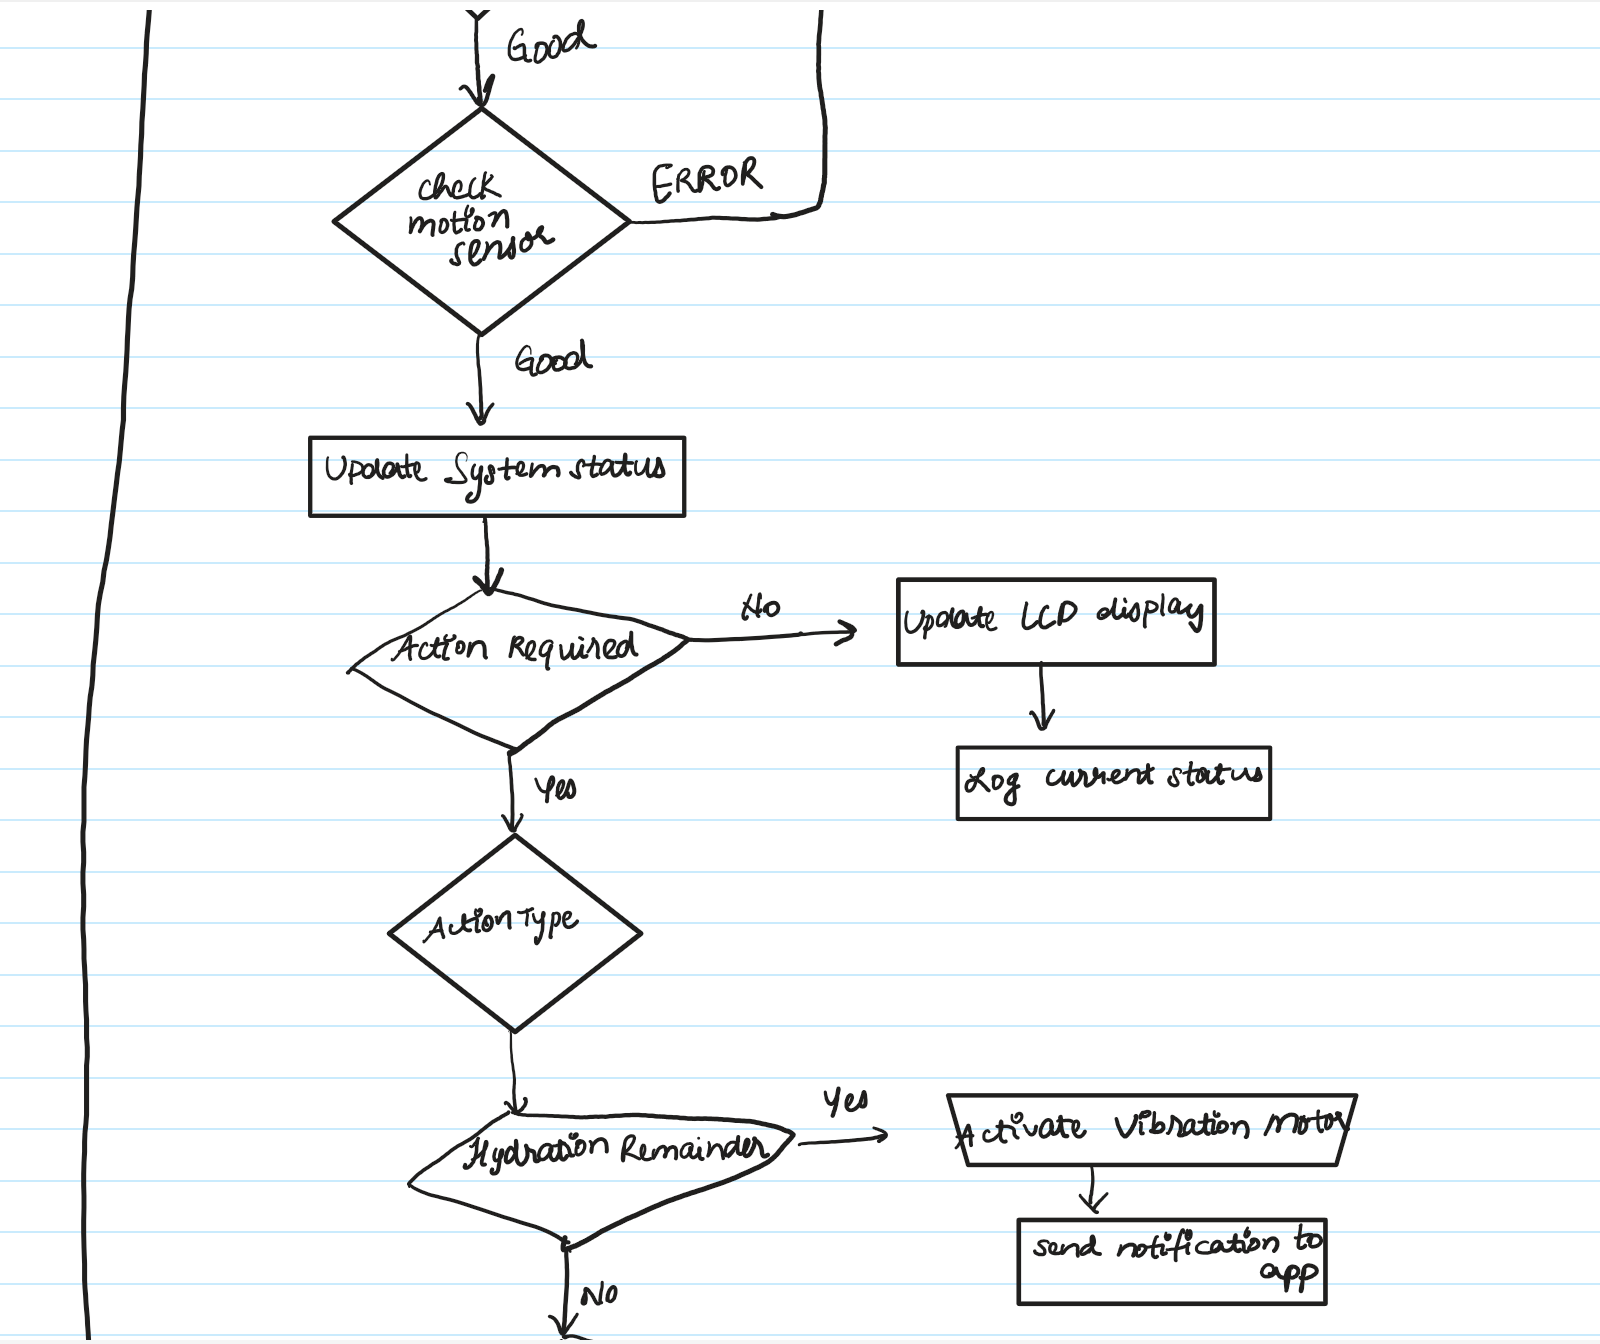 Good
check
motion
sensor
ERROR
Good
Update System status
Action Required
No
Update LCD display
Log current status
Yes
Action Type
Hydration Remainder
Yes
Activate Vibration motor
send notification to
app
No